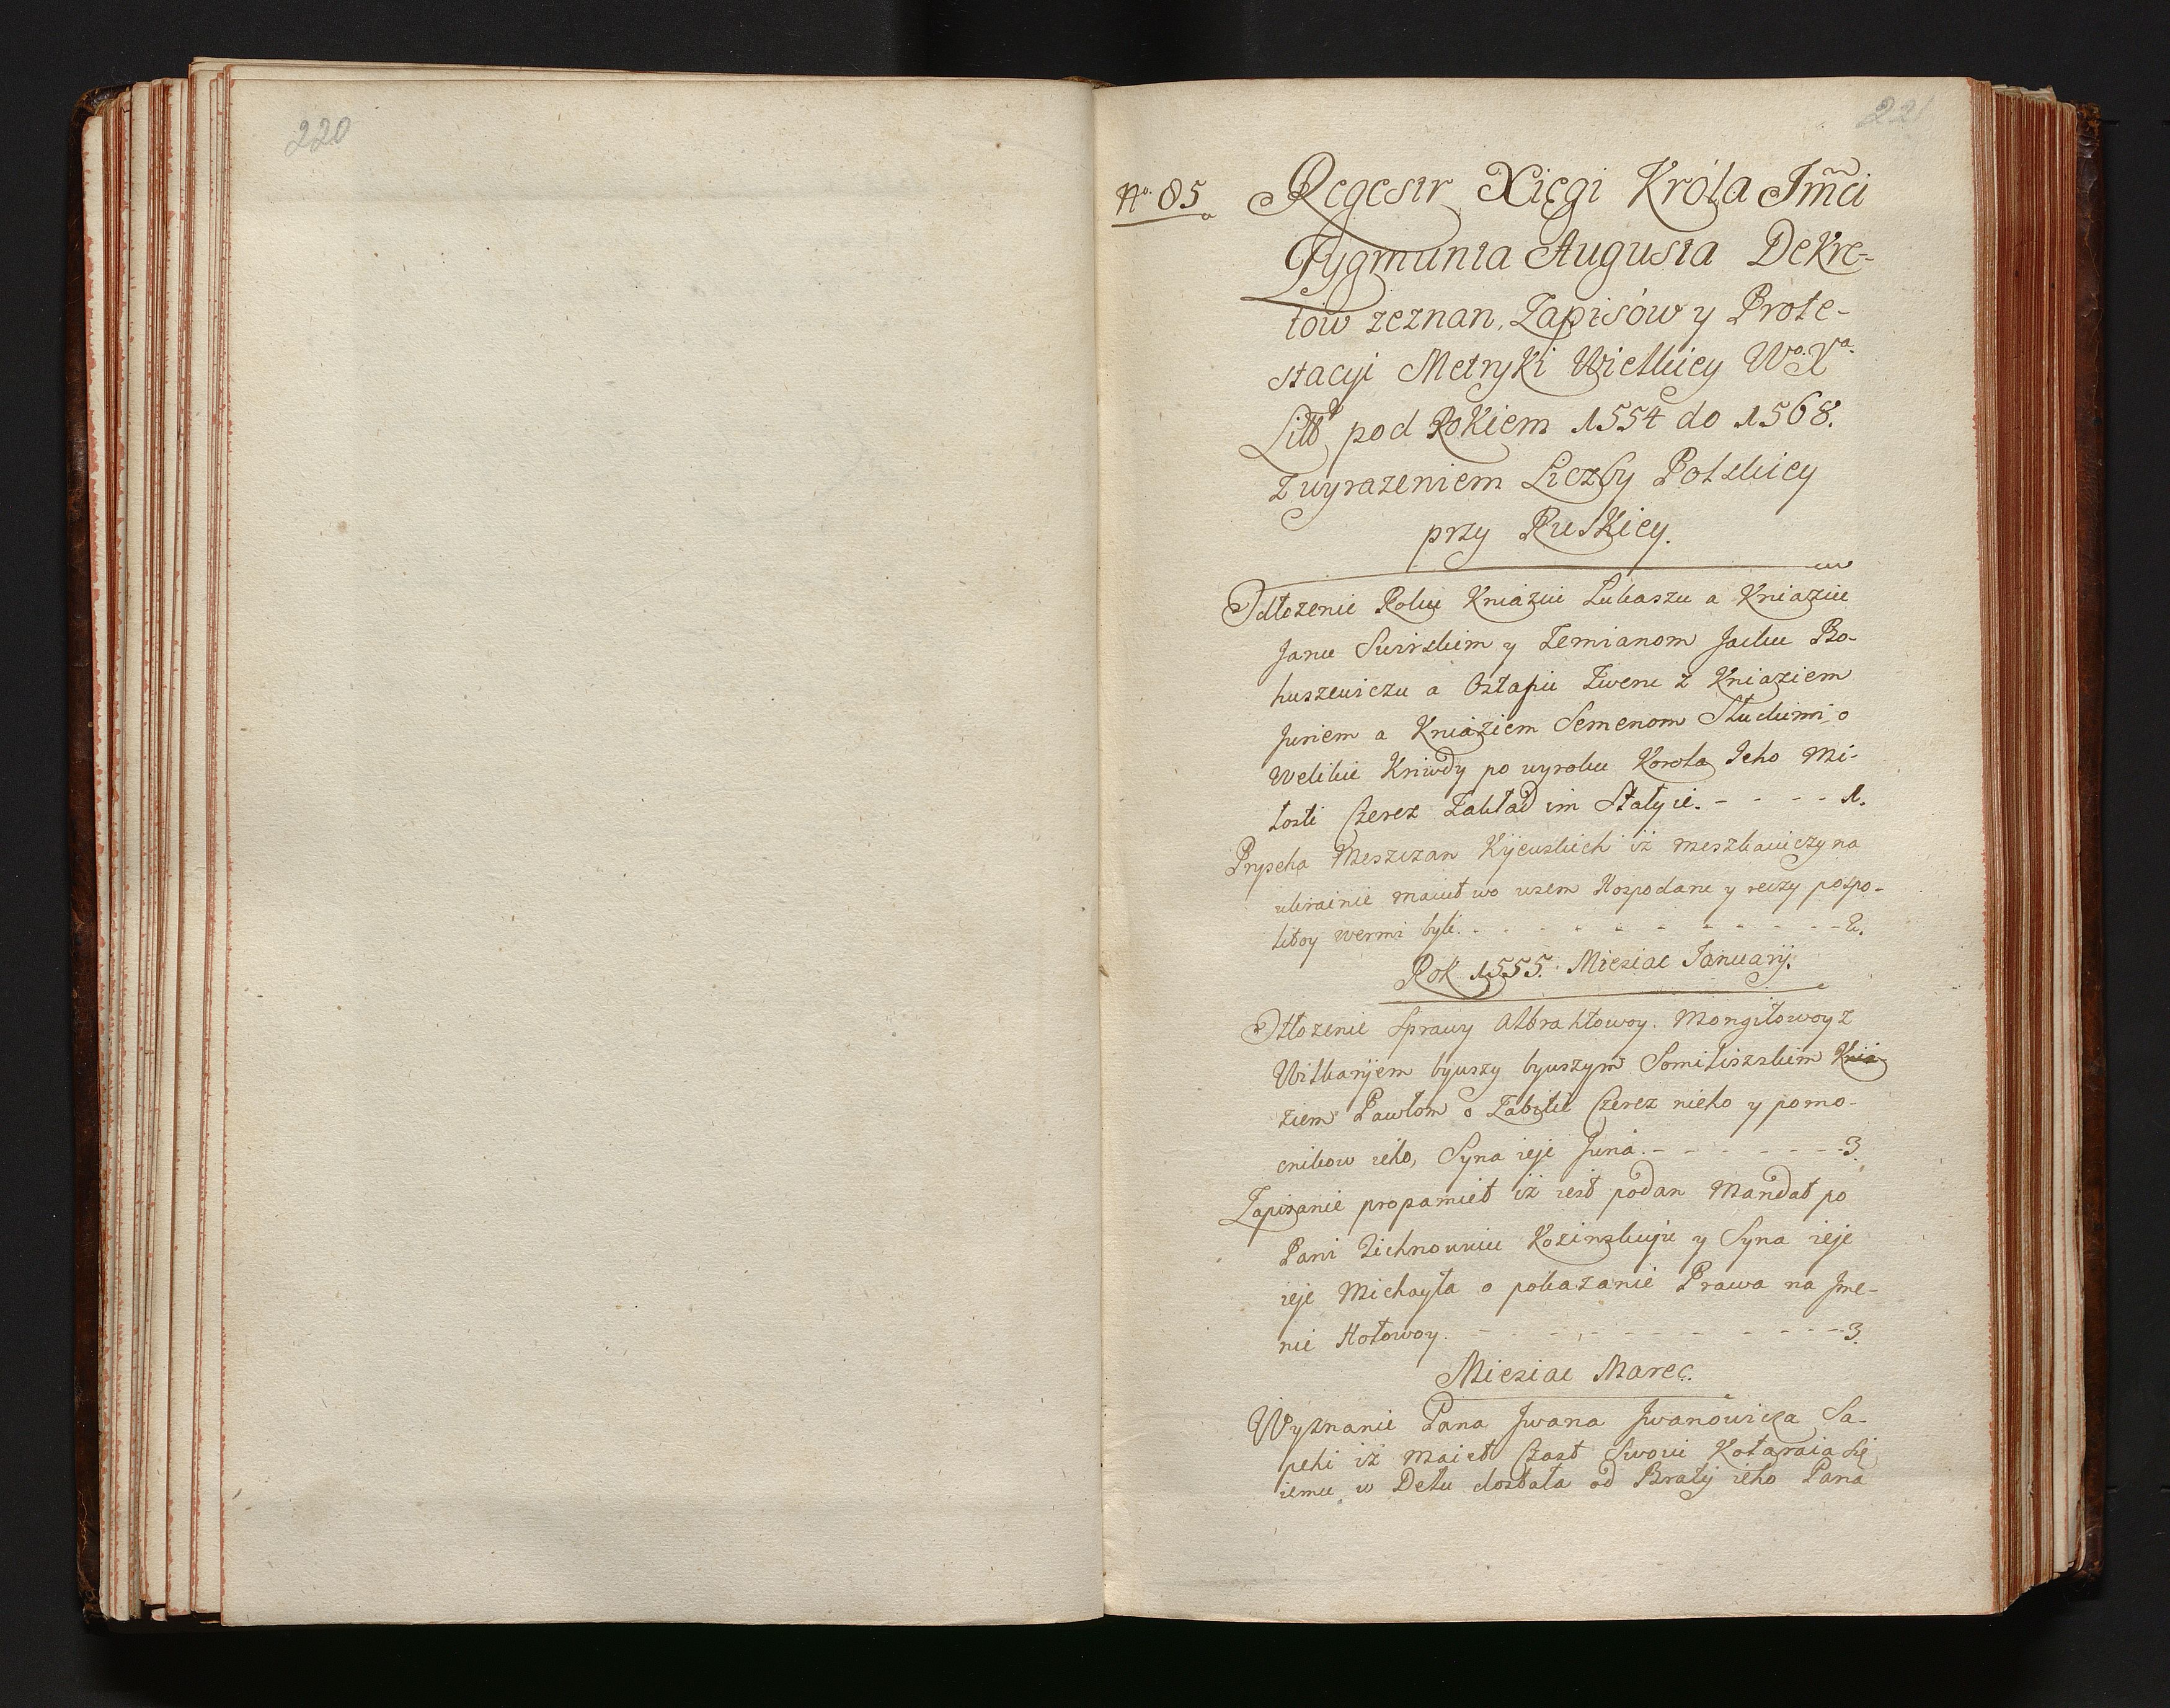 220
221
No. 85
Regestr Xięgi Króla Jmci
Zygmunta Augusta Dekre-
tów zeznan, Zapisów y Prote-
stacyi Metryki Wielkiey Wo. Xa.
Litt. pod Rokiem 1554 do 1568.
z wyrazeniem Liczby Polskiey
przy Ruskiey.
Odłozenie Roku Kniaziu Lukaszu a Kniaziu
Janu Swirskim y Zemianom Jacku Bo-
huszewiczu a Ostapiu Zwem z Kniaziem
Juriem a Kniaziem Semenom Słuckimi o
Welikie Kriwdy po wyroku Korola Jeho Mi-
łosti Czerez Zakład im Stałyie. - - - - 1.
Pryseha Meszczan Kijewskich iż meszkaiuczy na
ukrainie maiut wo wsem Hospodaru y reczy pospo-
litoy wermi byli. - - - - - - - - - - - 2.
Rok 1555. Miesiac Januarij.
Otłozenie Sprawy Olbrahtowoy. Mongiłowoy z
Witkaryem bywszy bywszym Somiliszskim Knia-
ziem Pawłom o Zabitie Czerez nieho y pomo-
cnikow ieho, Syna ieje Juria. - - - - - - - 3.
Zapisanie propamiet iż iest podan Mandat po
Pani Zichnowuiu Kozinskuju y Syna ieje
ieje Michayła o pokazanie Prawa na Jme-
nie Hołowoy. - - - - - - - - - - - 3.
Miesiac Marec.
Wyznanie Pana Jwana Jwanowicza Sa-
pehi iż maiet Czast Swoiu Kotaraia się
iemu w Dełu dostała od Bratij ieho Pana